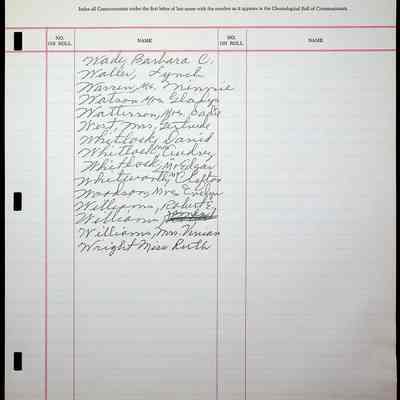 Index all Communicants under the first letter of last name with the number as it appears in the Chronological Roll of Communicants.
NO. ON ROLL NAME NO. ON ROLL NAME
Wade, Barbara C.
Waller, Lynch
Warren, Mrs. Minnie
Watson Mrs. Gladys
Watterson, Mrs. Sadie
West, Mrs. Gertrude
Whitlock, David
Whitlock, Lindsey
Whitlock, Mr Edgar
Whitworth, Clifton
Woodson, Mrs. Evelyn
Williams, Robert E.
Williams,
Williams, Mrs. Vivian
Wright Miss Ruth